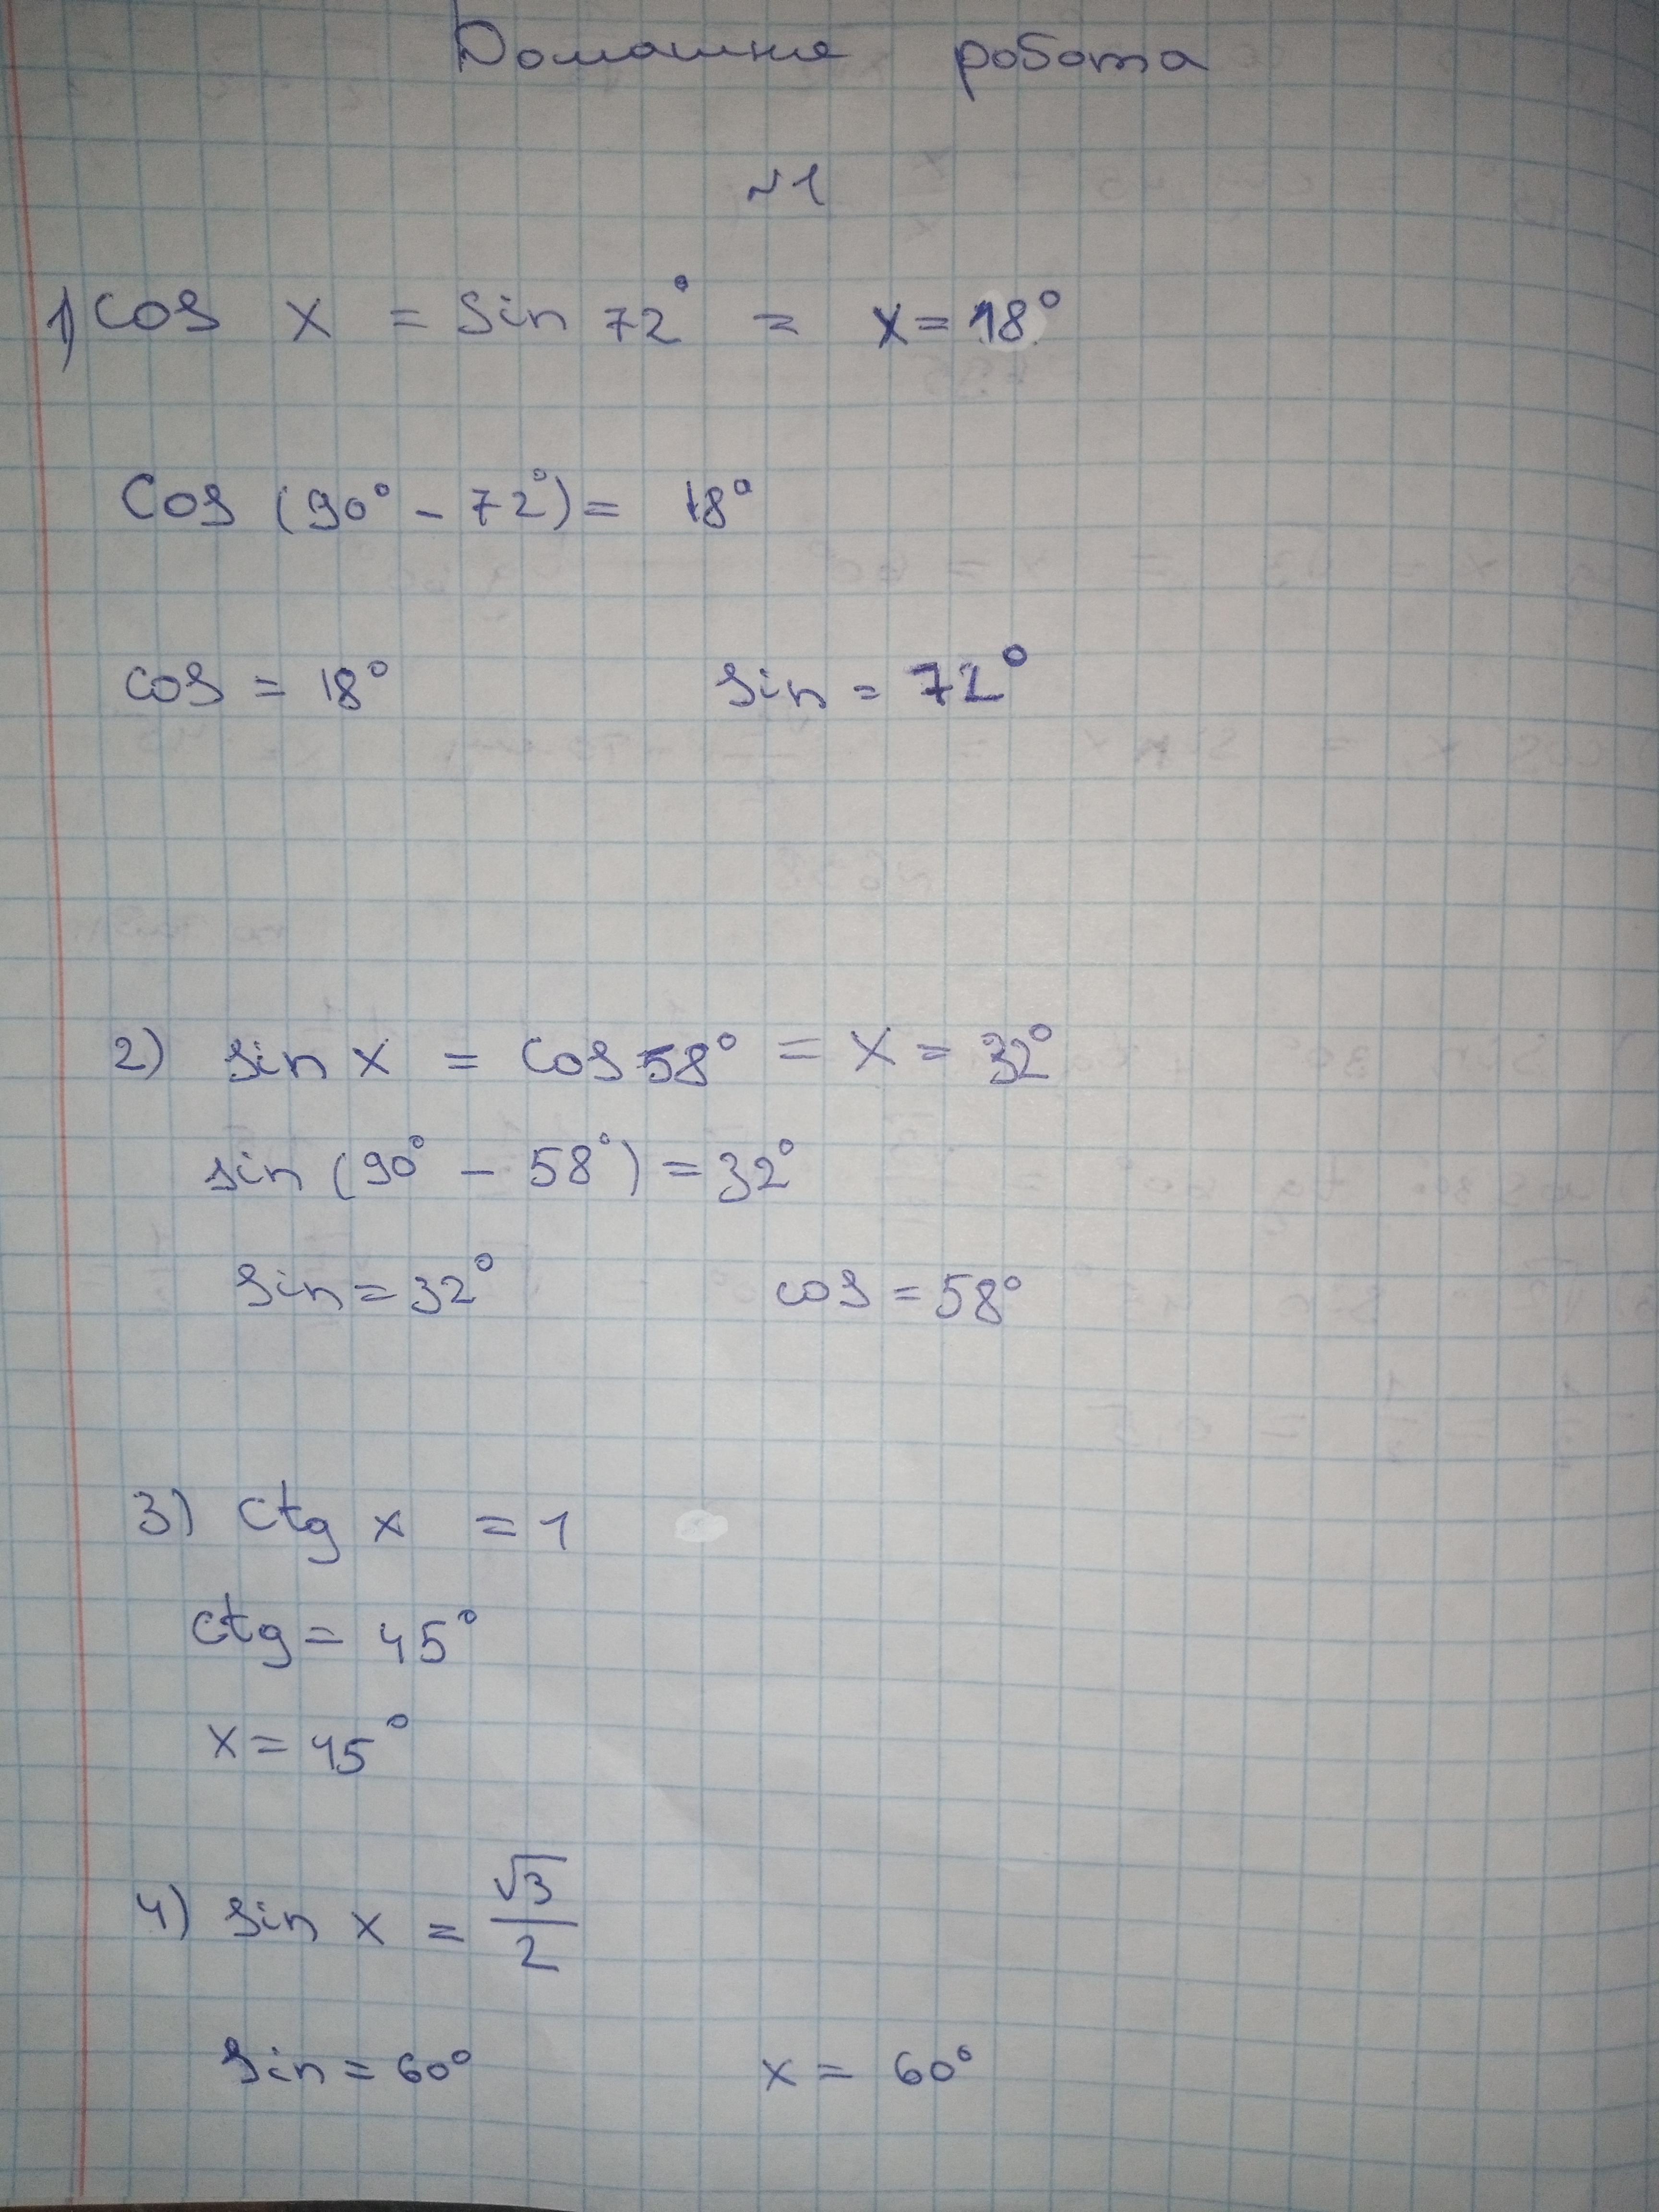 Домашня робота
№1
1) cos x = sin 72° = x = 18°
cos (90° - 72°) = 18°
cos = 18° sin = 72°
2) sin x = cos 58° = x = 32°
sin (90° - 58°) = 32°
sin = 32° cos = 58°
3) ctg x = 1
ctg = 45°
x = 45°
4) sin x = √3/2
sin = 60° x = 60°